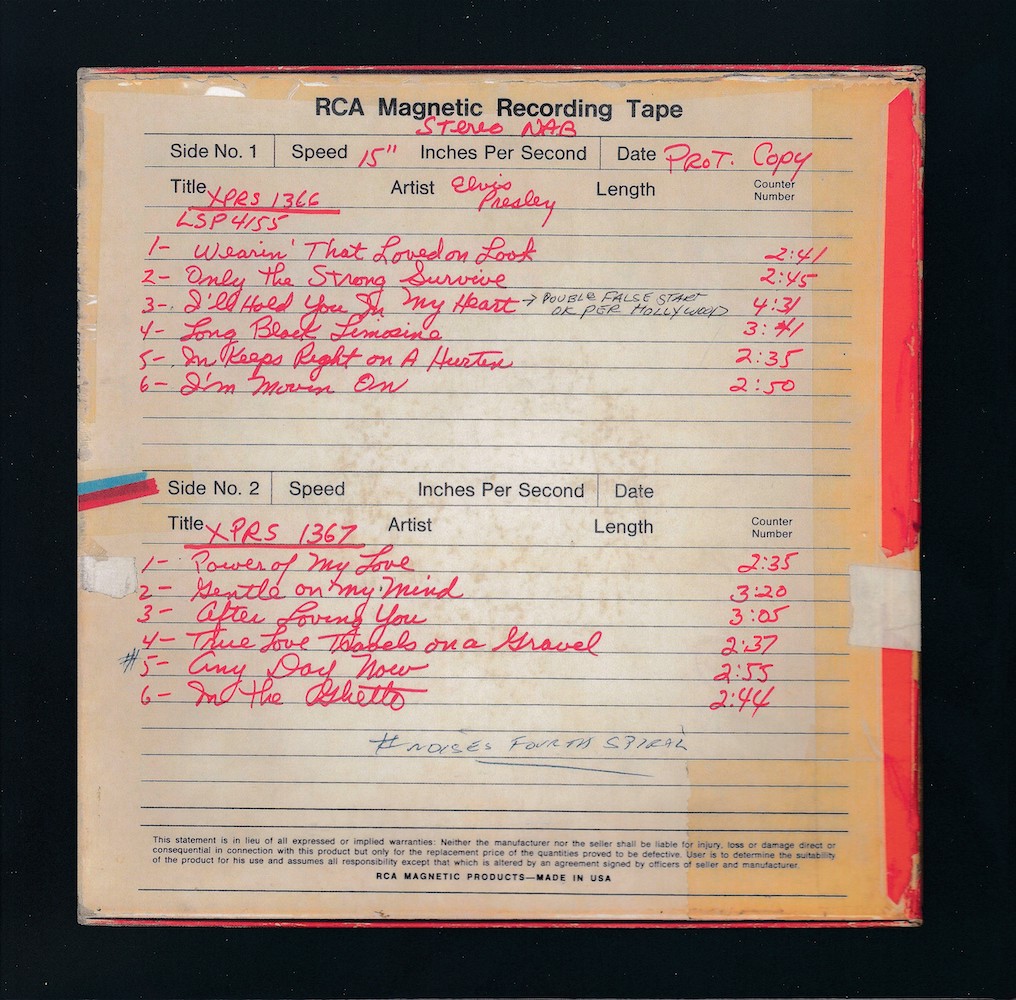 RCA Magnetic Recording Tape
Stereo NAB
Side No. 1 Speed 15" Inches Per Second Date PROT. Copy
Title XPRS 1366 Artist Elvis Presley Length Counter Number
LSP 4155
1- Wearin' That Loved on Look 2:41
2- Only the Strong Survive 2:45
3- I'll Hold You In My Heart → DOUBLE FALSE START OK PER HOLLYWOOD 4:31
4- Long Black Limosine 3:41
5- In Keeps Right on A Hurten 2:35
6- I'm Movin On 2:50
Side No. 2 Speed Inches Per Second Date
Title XPRS 1367 Artist Length Counter Number
1- Power of My Love 2:35
2- Gentle on my Mind 3:20
3- After Loving You 3:05
4- True Love Travels on a Gravel 2:37
# 5- Any Day Now 2:55
6- In the Ghetto 2:44
# NOISES FOURTH SPIRAL
This statement is in lieu of all expressed or implied warranties: Neither the manufacturer nor the seller shall be liable for injury, loss or damage direct or
consequential in connection with this product but only for the replacement price of the quantities proved to be defective. User is to determine the suitability
of the product for his use and assumes all responsibility except that which is altered by an agreement signed by officers of seller and manufacturer.
RCA MAGNETIC PRODUCTS—MADE IN USA